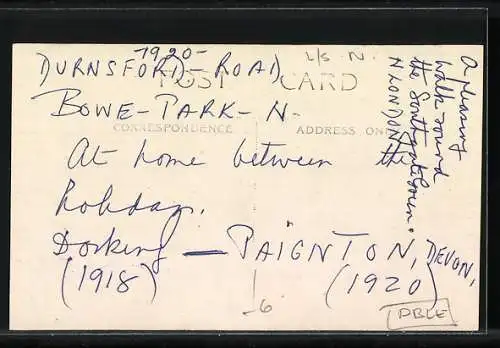 1920-
L/S N.
DURNSFORD-ROAD
POST CARD
BOWE-PARK-N-
CORRESPONDENCE
ADDRESS ONLY
At home between the
holidays.
Dorking — PAIGNTON, DEVON,
(1918) (1920)
-6
DBLE
A pleasing
walk round
the Southgate
N LONDON